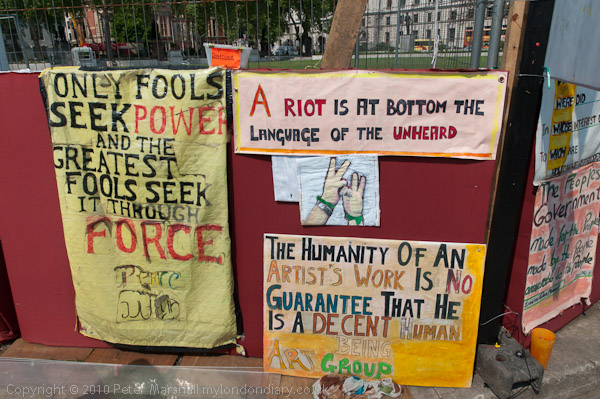 ONLY FOOLS
SEEK POWER
AND THE
GREATEST
FOOLS SEEK
IT THROUGH
FORCE
A RIOT IS AT BOTTOM THE
LANGUAGE OF THE UNHEARD
THE HUMANITY OF AN
ARTIST'S WORK IS NO
GUARANTEE THAT HE
IS A DECENT HUMAN
BEING
ART GROUP
WHERE DID
IN WHOSE INTEREST DO
TO WHOM ARE
The People's
Government
made by the People
made for the People
Copyright © 2010 Peter Marshall mylondondiary.co.uk